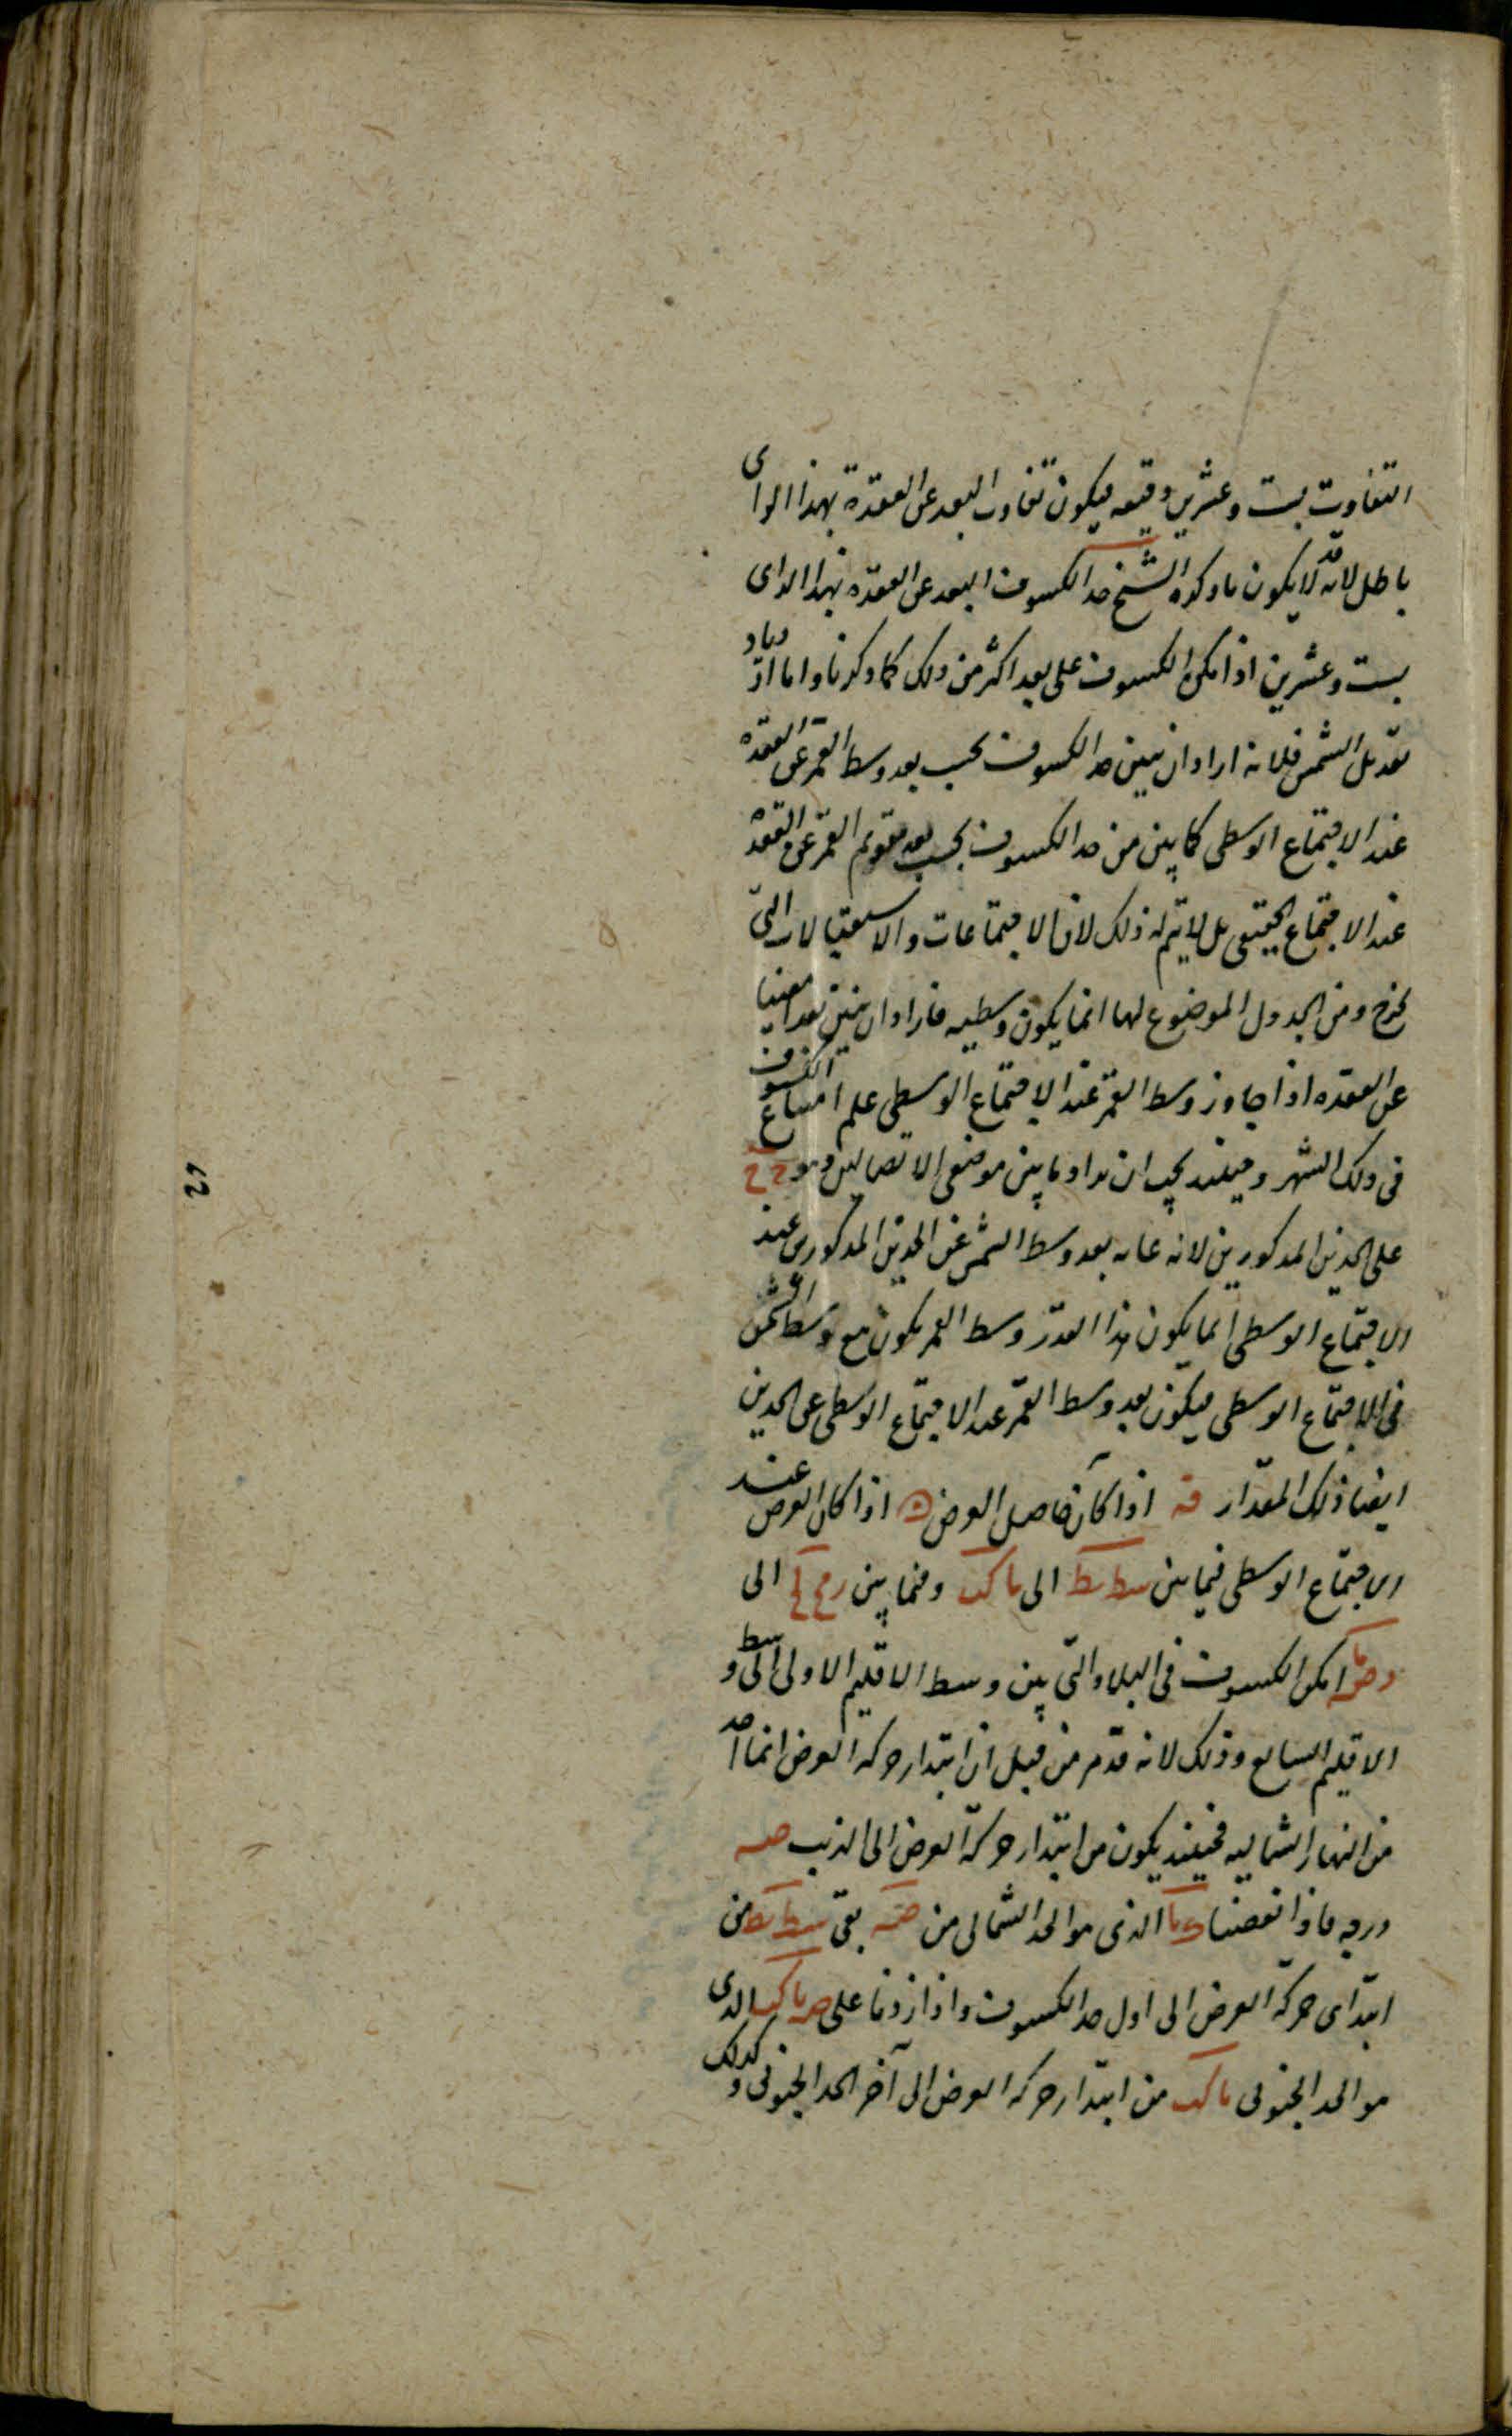 التفاوت بست وعشرين دقيقه فيكون تفاوت البعد عن العقدة بهذا الرأى
باطل لانه قد لا يكون ما ذكره الشيخ حد الكسوف البعد عن العقدة بهذا الراى
بست وعشرين اذ امكن الكسوف على بعد اكثر من ذلك كما ذكرنا واما ازدياد
تعديل الشمس فلانه اراد ان يبين حد الكسوف بحسب بعد وسط القمر عن العقدة
عند الاجتماع الوسطى كما يبين من حد الكسوف بحسب بعد تقويم القمر عن العقدة
عند الاجتماع الحقيقى بل لا يتم له ذلك لان الاجتماعات والاستقبالات التى
تخرج من الجدول الموضوع لها انما يكون وسطيه فاراد ان يبين بعدا معينا
عن العقده اذا جاوز وسط القمر عند الاجتماع الوسطى علم امتناع الكسوف
فى ذلك الشهر وحينئذ يجب ان يزاد ما بين موضعى الاتصالين وهو ح ح
على الحدين المذكورين لانه غايه بعد وسط الشمس عن الحدين المذكورين عند
الاجتماع الوسطى انما يكون هذا القدر وسط القمر يكون مع وسط الشمس
فى الاجتماع الوسطى فيكون بعد وسط القمر عند الاجتماع الوسطى عن الحدين
ايضا ذلك المقدار فه اذا كان حاصل العرض اذا كان العرض عند
الاجتماع الوسطى فيما بين سط يط الى ما كب وفيما بين الى
امكن الكسوف فى البلاد التى بين وسط الاقليم الاول الى وسط
الاقليم السابع وذلك لانه قد مر من قبل ان ابتدا حركه العرض انما اخذ
من النهايه الشماليه فحينئذ يكون من ابتدا حركة العرض الى الذنب ص
درجه فاذا نقصنا الذى هو الحد الشمالى من ص بقى سط يط من
ابتداى حركة العرض الى اول حد الكسوف واذا زدنا على ص يا كب الذى
هو الحد الجنوبى ما كب من ابتدا حركه العرض الى آخر الحد الجنوبى وكذلك